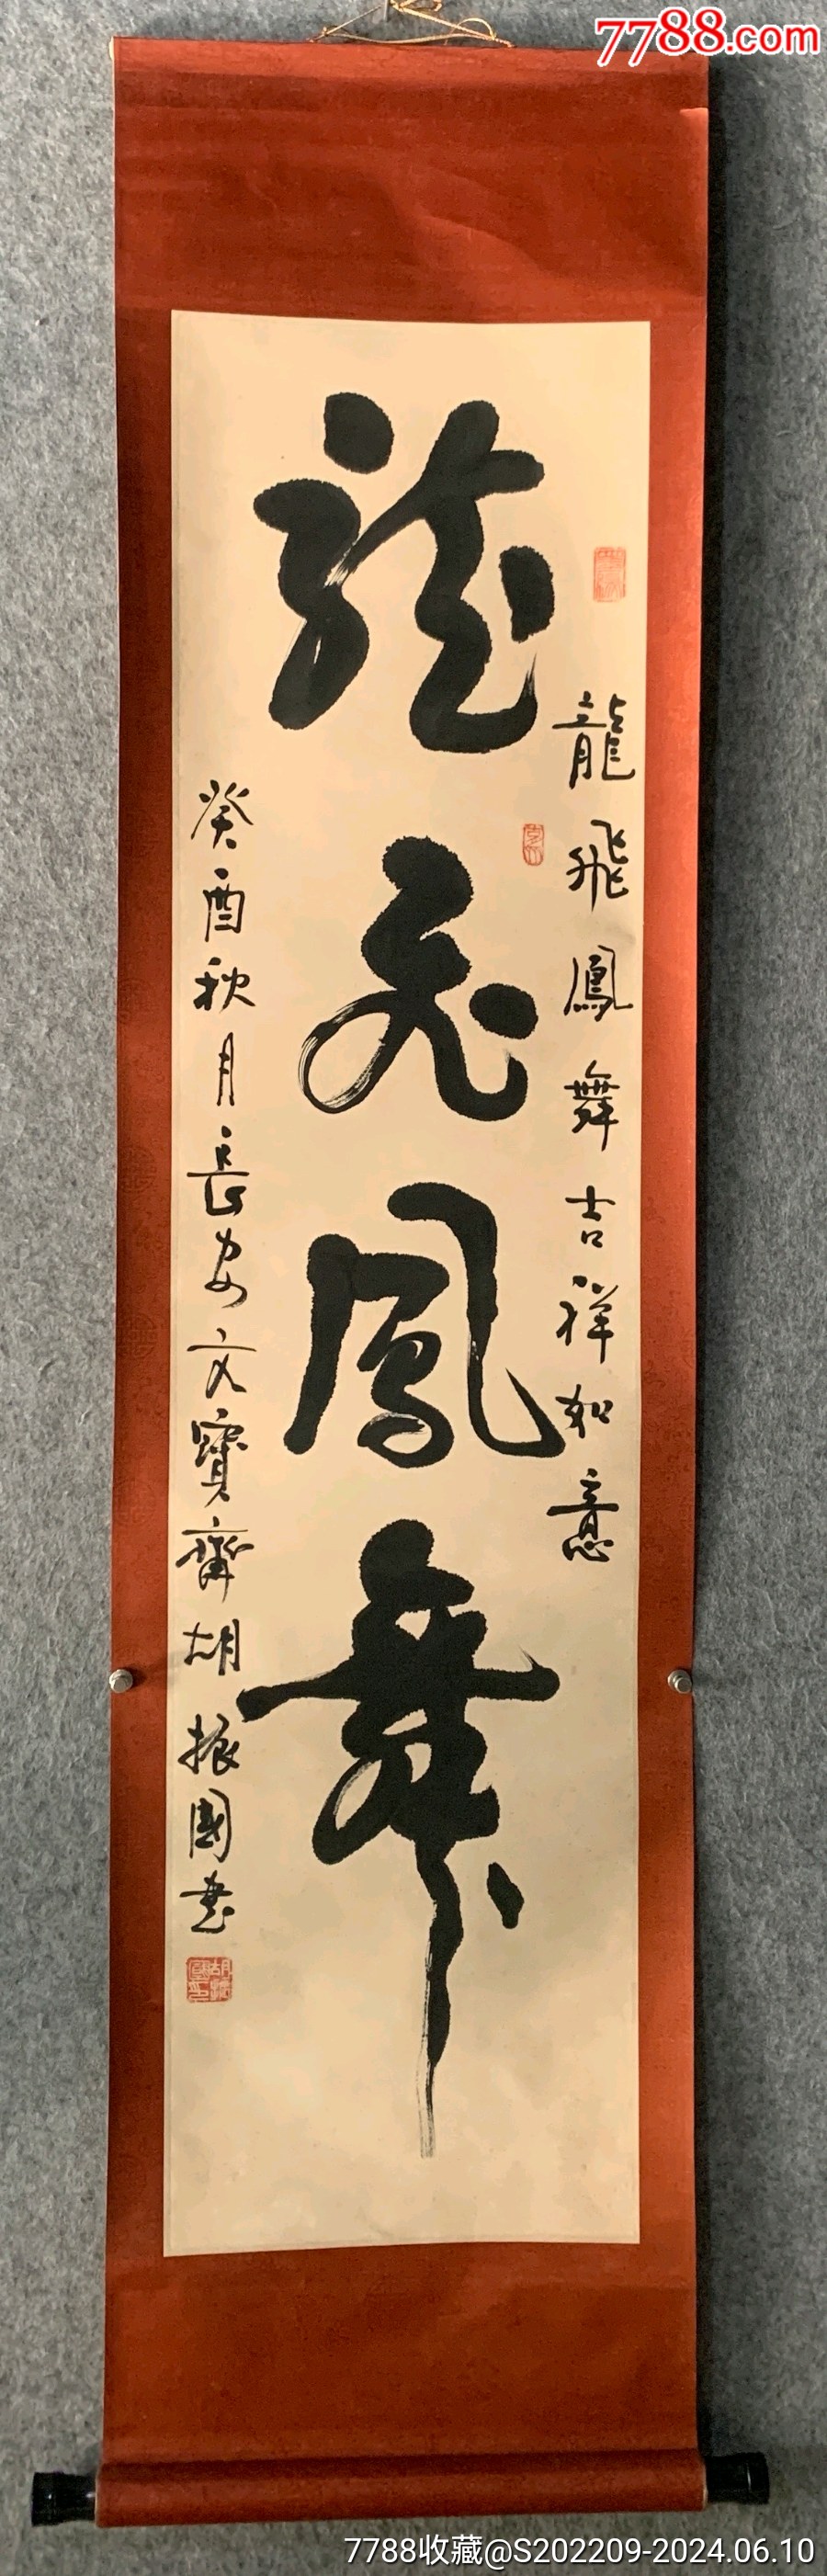 7788.com
龍飛鳳舞吉祥如意
龍飛鳳舞
癸酉秋月長安文寶齋胡振國書
7788收藏@S202209-2024.06.10